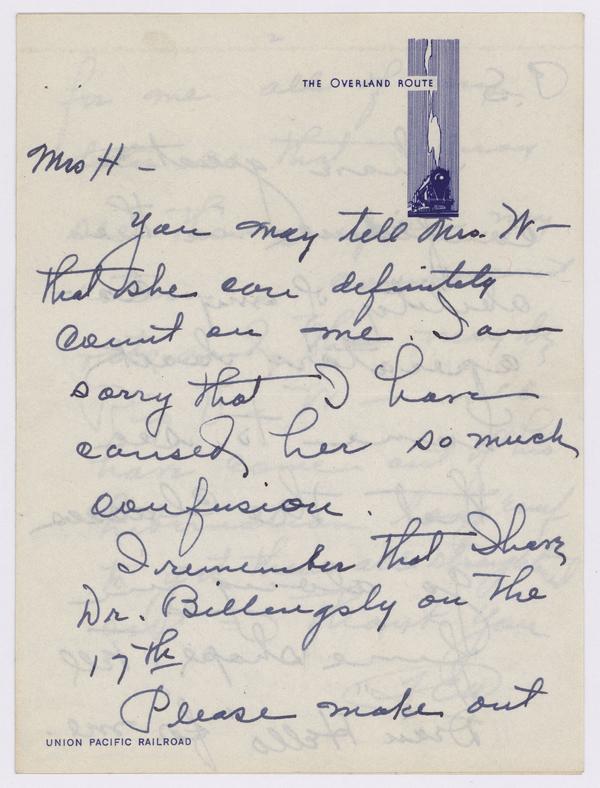 THE OVERLAND ROUTE
Mrs H -
You may tell Mrs. W-
that she can definitely
count on me. I am
sorry that I have
caused her so much
confusion.
I remember that I have
Dr. Billingsly on the
17th
Please make out
UNION PACIFIC RAILROAD